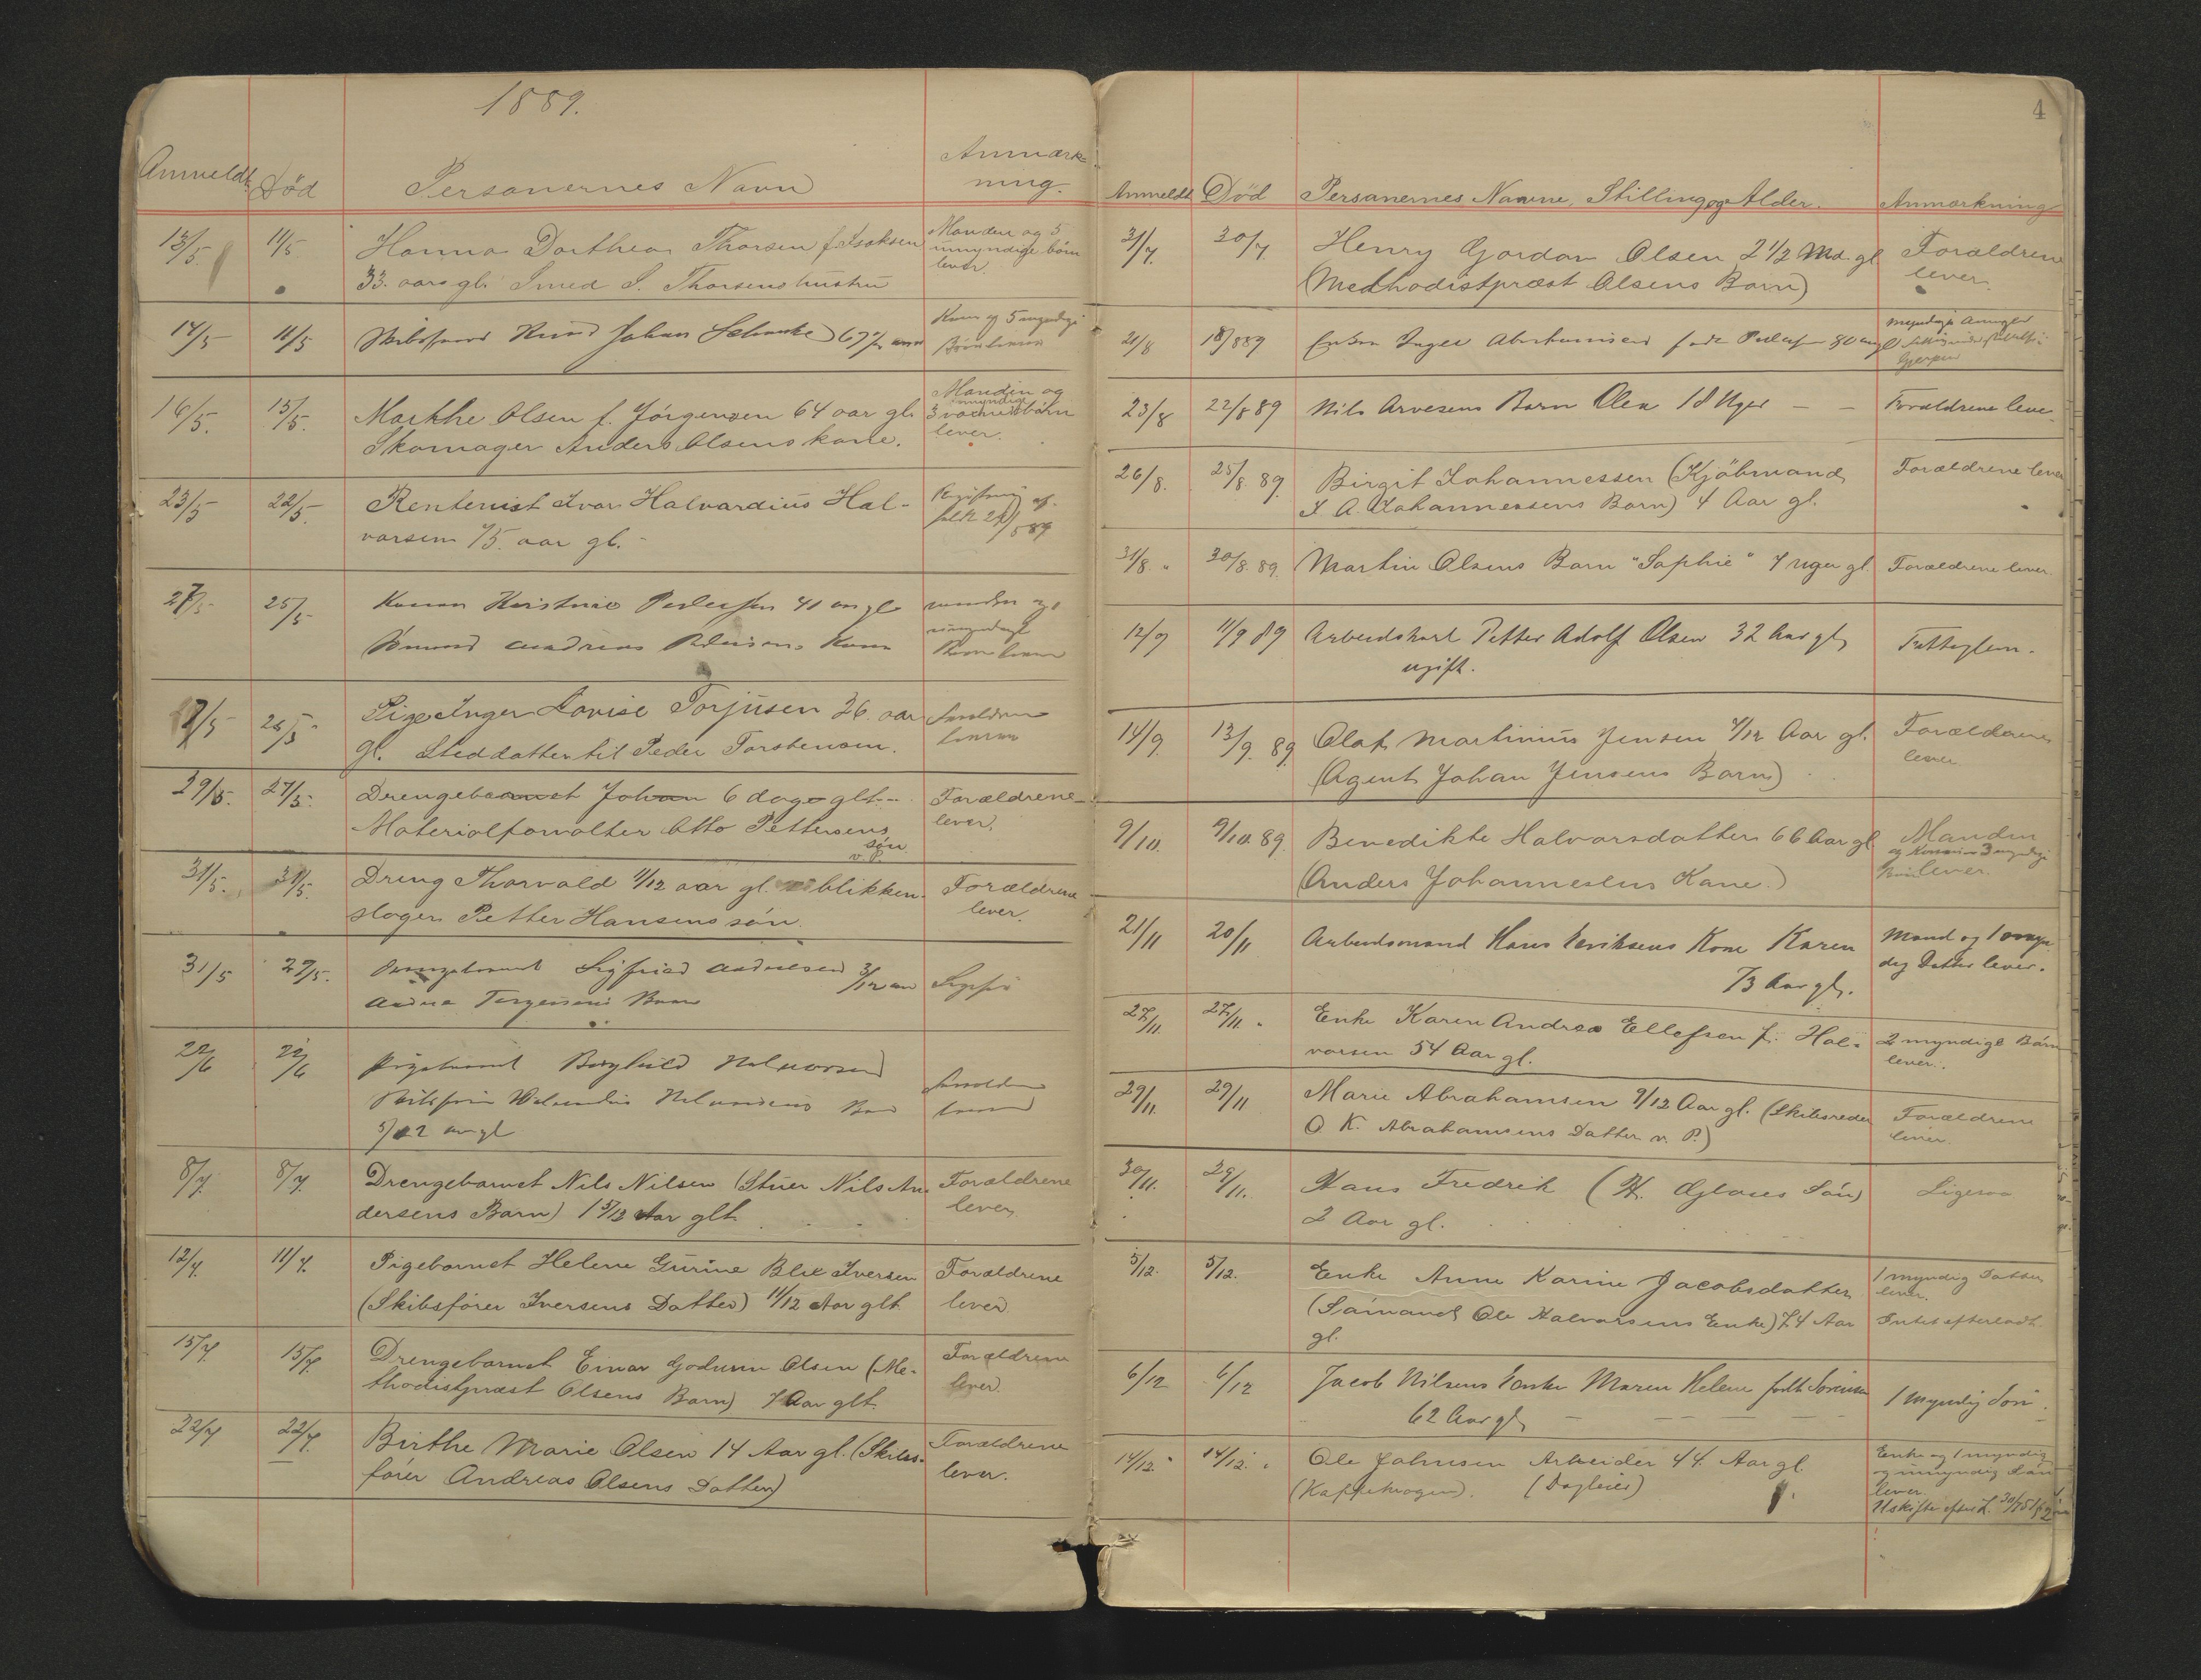 1889.
Anmeldt Død Personernes Navn Anmærkning.
13/5. 11/5 Hanna Dorthea Thorsen f. Isaksen Manden og 5
33. aars gl. Smed S. Thorsens hustru umyndige børn
lever.
14/5 11/5 Johan 67 Kone og 5 myndige
Børn
16/5. 15/5. Marthe Olsen f. Jørgensen 64 aar gl. Manden og
Skomager Anders Olsens kone. 3 myndige børn
lever.
23/5 22/5. Rentenist Ivar Halvardius Hal-
vorsen 75. aar gl. -
27/5 25/5 Konen Kristine Pedersen 41 aar gl manden og
Sømand Andreas Kone
7/5 26/5 Pige Inger Lovise Torjusen 26. aar Forældrene
gl. Steddatter til Peder Torstensen. leve
29/5. 27/5. Drengebarnet Johan 6 dage glt. - Forældrene
Materialforvalter Otto Pettersens lever.
søn.
v. P.
31/5. 31/5. Dreng Thorvald 11/12 aar gl. blikken- Forældrene
slager Petter Hansens søn. lever.
31/5 29/5. Drengebarnet Sigfried Andresen 3/12 aar Ligesaa
Barn
22/6 22/6 Pigebarnet Borghild Halvorsen Forældrene
Barn
5/12 aar gl
8/7. 8/7. Drengebarnet Nils Nilsen (Stuer Nils An- Forældrene
dersens Barn) 1 5/12 Aar glt. lever.
12/7. 11/7. Pigebarnet Helene Gurine Blix Iversen Forældrene
(Skibsfører Iversens Datter) 11/12 Aar glt lever
15/7. 15/7. Drengebarnet Einar Godwin Olsen (Me- Forældrene
thodistpræst Olsens Barn) 7 Aar glt. lever.
22/7 22/7. Birthe Marie Olsen 14 Aar gl. (Skibs- Forældrene
fører Andreas Olsens Datter) lever.
4
Anmeldt Død Personernes Navne, Stilling og Alder. Anmærkning
31/7. 30/7. Henry Gordon Olsen 2 1/2 Md. gl Forældrene
(Methodistpræst Olsens Barn) lever.
21/8 18/8 89 Enken Inger Abrahamsen født 80 aar gl
Gjerpen
23/8 22/8 89 Nils Arvesens Barn Olea 18 Uger - - Forældrene leve.
26/8. 25/8. 89. Birgit Johannessen (Kjøbmand Forældrene lever
J. A. Johannessens Barn) 4 Aar gl.
31/8. " 30/8. 89. Martin Olsens Barn "Sophie" 7 uger gl. Forældrene lever.
12/9 11/9 89 Arbeidskarl Petter Adolf Olsen 32 Aar gl, Fattiglem.
ugift.
14/9. 13/9. 89. Olaf Martinius Jensen 7/12 Aar gl. Forældrene
(Agent Johan Jensens Barn) lever
9/10. 9/10. 89. Benedikte Halvorsdatter 66 Aar gl Manden
(Anders Johannesens Kone.) og 3 myndige
Børn lever.
21/11 20/11 Arbeidsmand Hans Eriksens Kone Karen Mand og 1 myn
73 Aar gl. dig Datter lever.
27/11. 27/11. " Enke Karen Andrea Ellefsen f. Hal- 2 myndige Børn
vorsen 54 Aar gl. lever.
29/11. 29/11 Marie Abrahamsen 9/12 Aar gl. (Skibsreder Forældrene
O. K. Abrahamsens Datter v. P.) lever.
30/11. 29/11. Hans Fredrik (H. Søn) Ligesaa
2 Aar gl.
5/12. 5/12. Enke Anne Karine Jacobsdatter 1 myndig Datter
lever.
(Sømand Ole Halvorsens Enke) 74 Aar Intet efterladt.
gl.
6/12 6/12 Jacob Nilsens Enke Maren Helene født Sørensen 1 myndig Søn.
62 Aar gl,
14/12. " 14/12. " Ole Johnsen Arbeider 44 Aar gl. Enke og 1 myndig
(Kappekrogen). (Dagleier) og umyndig Søn
lever.